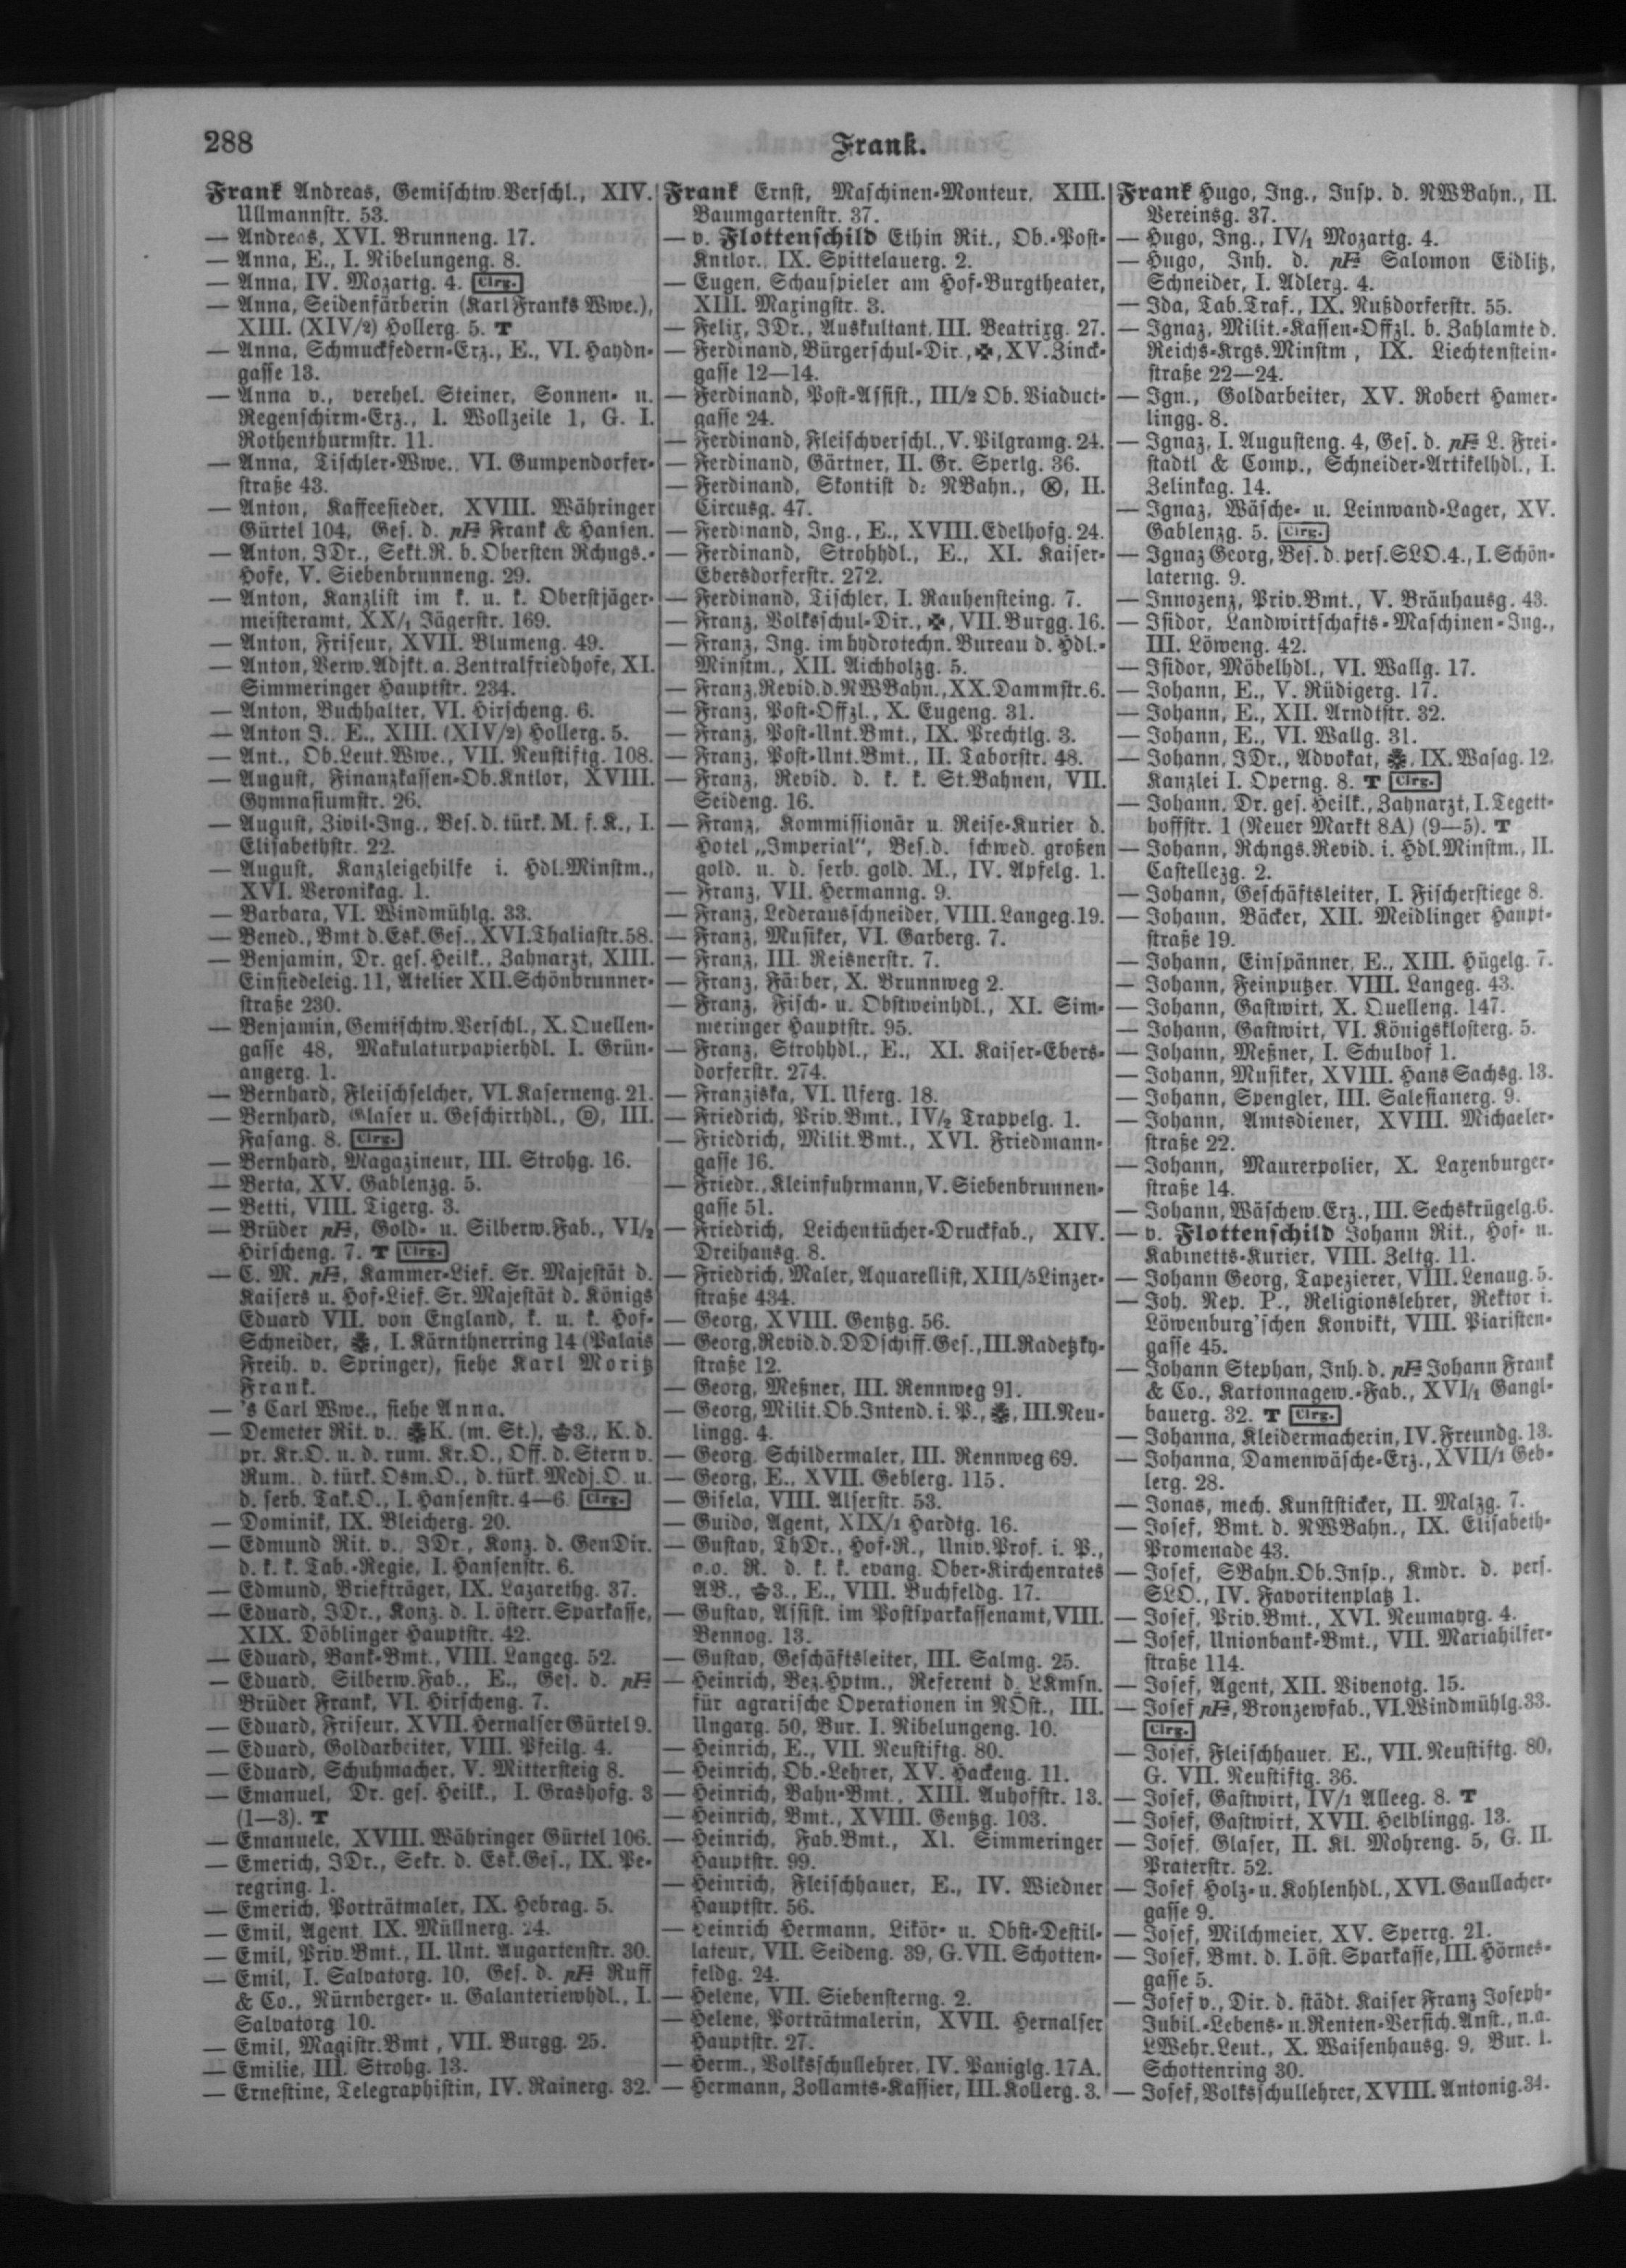 288
Frank.
Frank Andreas, Gemischtw.Verschl., XIV.
Ullmannstr. 53.
— Andreas, XVI. Brunneng. 17.
— Anna, E., I. Nibelungeng. 8.
— Anna, IV. Mozartg. 4. Clrg.
— Anna, Seidenfärberin (Karl Franks Wwe.),
XIII. (XIV/2) Hollerg. 5. T
— Anna, Schmuckfedern-Erz., E., VI. Haydn-
gasse 13.
— Anna v., verehel. Steiner, Sonnen- u.
Regenschirm-Erz., I. Wollzeile 1, G. I.
Rothenthurmstr. 11.
— Anna, Tischler-Wwe., VI. Gumpendorfer-
straße 43.
— Anton, Kaffeesieder, XVIII. Währinger
Gürtel 104, Ges. d. pF Frank & Hansen.
— Anton, JDr., Sekt.R. b. Obersten Rchngs.-
Hofe, V. Siebenbrunneng. 29.
— Anton, Kanzlist im k. u. k. Oberstjäger-
meisteramt, XX/1 Jägerstr. 169.
— Anton, Friseur, XVII. Blumeng. 49.
— Anton, Verw.Adjkt. a. Zentralfriedhofe, XI.
Simmeringer Hauptstr. 234.
— Anton, Buchhalter, VI. Hirscheng. 6.
— Anton J., E., XIII. (XIV/2) Hollerg. 5.
— Ant., Ob.Leut.Wwe., VII. Neustiftg. 108.
— August, Finanzkassen-Ob.Kntlor, XVIII.
Gymnasiumstr. 26.
— August, Zivil-Ing., Bes. d. türk. M. f. K., I.
Elisabethstr. 22.
— August, Kanzleigehilfe i. Hdl.Minstm.,
XVI. Veronikag. 1.
— Barbara, VI. Windmühlg. 33.
— Bened., Bmt d.Esk.Ges., XVI.Thaliastr.58.
— Benjamin, Dr. ges. Heilk., Zahnarzt, XIII.
Einsiedeleig. 11, Atelier XII.Schönbrunner-
straße 230.
— Benjamin, Gemischtw.Verschl., X. Quellen-
gasse 48, Makulaturpapierhdl. I. Grün-
angerg. 1.
— Bernhard, Fleischselcher, VI.Kaserneng. 21.
— Bernhard, Glaser u. Geschirrhdl., Ⓓ, III.
Fasang. 8. Clrg.
— Bernhard, Magazineur, III. Strohg. 16.
— Berta, XV. Gablenzg. 5.
— Betti, VIII. Tigerg. 3.
— Brüder pF, Gold- u. Silberw.Fab., VI/2
Hirscheng. 7. T Clrg.
— C. M. pF, Kammer-Lief. Sr. Majestät d.
Kaisers u. Hof-Lief. Sr. Majestät d. Königs
Eduard VII. von England, k. u. k. Hof-
Schneider, I. Kärnthnerring 14 (Palais
Freih. v. Springer), siehe Karl Moritz
Frank.
— 's Carl Wwe., siehe Anna.
— Demeter Rit. v., K. (m. St.), 3., K. d.
pr. Kr.O. u. d. rum. Kr.O., Off. d. Stern v.
Rum., d. türk. Osm.O., d. türk. Medj.O. u.
d. serb. Tak.O., I. Hansenstr. 4—6. Clrg.
— Dominik, IX. Bleicherg. 20.
— Edmund Rit. v., JDr., Konz. d. GenDir.
d. k. k. Tab.-Regie, I. Hansenstr. 6.
— Edmund, Briefträger, IX. Lazarethg. 37.
— Eduard, JDr., Konz. d. I. österr. Sparkasse,
XIX. Döblinger Hauptstr. 42.
— Eduard, Bank-Bmt., VIII. Langeg. 52.
— Eduard, Silberw.Fab., E., Ges. d. pF
Brüder Frank, VI. Hirscheng. 7.
— Eduard, Friseur, XVII. Hernalser Gürtel 9.
— Eduard, Goldarbeiter, VIII. Pfeilg. 4.
— Eduard, Schuhmacher, V. Mittersteig 8.
— Emanuel, Dr. ges. Heilk., I. Grashofg. 3
(1—3). T
— Emanuele, XVIII. Währinger Gürtel 106.
— Emerich, JDr., Sekr. d. Esk.Ges., IX. Pe-
regring. 1.
— Emerich, Porträtmaler, IX. Hebrag. 5.
— Emil, Agent IX. Müllnerg. 24.
— Emil, Priv.Bmt., II. Unt. Augartenstr. 30.
— Emil, I. Salvatorg. 10, Ges. d. pF Ruff
& Co., Nürnberger- u. Galanteriewhdl., I.
Salvatorg 10.
— Emil, Magistr.Bmt, VII. Burgg. 25.
— Emilie, III. Strohg. 13.
— Ernestine, Telegraphistin, IV. Rainerg. 32.
Frank Ernst, Maschinen-Monteur, XIII.
Baumgartenstr. 37.
— v. Flottenschild Ethin Rit., Ob.-Post-
Kntlor., IX. Spittelauerg. 2.
— Eugen, Schauspieler am Hof-Burgtheater,
XIII. Maxingstr. 3.
— Felix, JDr., Auskultant, III. Beatrixg. 27.
— Ferdinand, Bürgerschul-Dir., XV. Zinck-
gasse 12—14.
— Ferdinand, Post-Assist., III/2 Ob. Viaduct-
gasse 24.
— Ferdinand, Fleischverschl., V. Pilgramg. 24.
— Ferdinand, Gärtner, II. Gr. Sperlg. 36.
— Ferdinand, Skontist d. NBahn., Ⓚ, II.
Circusg. 47.
— Ferdinand, Ing., E., XVIII. Edelhofg. 24.
— Ferdinand, Strohhdl., E., XI. Kaiser-
Ebersdorferstr. 272.
— Ferdinand, Tischler, I. Rauhensteing. 7.
— Franz, Volksschul-Dir., VII. Burgg. 16.
— Franz, Ing. im hydrotechn. Bureau d. Hdl.-
Minstm., XII. Aichholzg. 5.
— Franz, Revid. d. NWBahn., XX. Dammstr. 6.
— Franz, Post-Offzl., X. Eugeng. 31.
— Franz, Post-Unt.Bmt., IX. Prechtlg. 3.
— Franz, Post-Unt.Bmt., II. Taborstr. 48.
— Franz, Revid. d. k. k. St.Bahnen, VII.
Seideng. 16.
— Franz, Kommissionär u. Reise-Kurier d.
Hotel „Imperial“, Bes.d. schwed. großen
gold. u. d. serb. gold. M., IV. Apfelg. 1.
— Franz, VII. Hermanng. 9.
— Franz, Lederausschneider, VIII. Langeg. 19.
— Franz, Musiker, VI. Garberg. 7.
— Franz, III. Reisnerstr. 7.
— Franz, Färber, X. Brunnweg 2.
— Franz, Fisch- u. Obstweinhdl., XI. Sim-
meringer Hauptstr. 95.
— Franz, Strohhdl., E., XI. Kaiser-Ebers-
dorferstr. 274.
— Franziska, VI. Uferg. 18.
— Friedrich, Priv.Bmt., IV/2 Trappelg. 1.
— Friedrich, Milit.Bmt., XVI. Friedmann-
gasse 16.
— Friedr., Kleinfuhrmann, V. Siebenbrunnen-
gasse 51.
— Friedrich, Leichentücher-Druckfab., XIV.
Dreihausg. 8.
— Friedrich, Maler, Aquarellist, XIII/5 Linzer-
straße 434.
— Georg, XVIII. Gentzg. 56.
— Georg, Revid. d. DDschiff.Ges., III. Radetzky-
straße 12.
— Georg, Meßner, III. Rennweg 91.
— Georg, Milit.Ob.Intend. i. P., III. Neu-
lingg. 4.
— Georg, Schildermaler, III. Rennweg 69.
— Georg, E., XVII. Geblerg. 115.
— Gisela, VIII. Alserstr. 53.
— Guido, Agent, XIX/1 Hardtg. 16.
— Gustav, ThDr., Hof-R., Univ.Prof. i. P.,
a.o. R. d. k. k. evang. Ober-Kirchenrates
AB., 3., E., VIII. Buchfeldg. 17.
— Gustav, Assist. im Postsparkassenamt, VIII.
Bennog. 13.
— Gustav, Geschäftsleiter, III. Salmg. 25.
— Heinrich, Bez.Hptm., Referent d. LKmsn.
für agrarische Operationen in NÖst., III.
Ungarg. 50, Bur. I. Nibelungeng. 10.
— Heinrich, E., VII. Neustiftg. 80.
— Heinrich, Ob.-Lehrer, XV. Hackeng. 11.
— Heinrich, Bahn-Bmt., XIII. Auhofstr. 13.
— Heinrich, Bmt., XVIII. Gentzg. 103.
— Heinrich, Fab.Bmt., XI. Simmeringer
Hauptstr. 99.
— Heinrich, Fleischhauer, E., IV. Wiedner
Hauptstr. 56.
— Heinrich Hermann, Likör- u. Obst-Destil-
lateur, VII. Seideng. 39, G. VII. Schotten-
feldg. 24.
— Helene, VII. Siebensterng. 2.
— Helene, Porträtmalerin, XVII. Hernalser
Hauptstr. 27.
— Herm., Volksschullehrer, IV. Paniglg. 17A.
— Hermann, Zollamts-Kassier, III. Kollerg. 3.
Frank Hugo, Ing., Insp. d. NWBahn., II.
Vereinsg. 37.
— Hugo, Ing., IV/1 Mozartg. 4.
— Hugo, Inh. d. pF Salomon Eidlitz,
Schneider, I. Adlerg. 4.
— Ida, Tab.Traf., IX. Nußdorferstr. 55.
— Ignaz, Milit.-Kassen-Offzl. b. Zahlamte d.
Reichs-Krgs.Minstm, IX. Liechtenstein-
straße 22—24.
— Ign., Goldarbeiter, XV. Robert Hamer-
lingg. 8.
— Ignaz, I. Augusteng. 4, Ges. d. pF L. Frei-
stadtl & Comp., Schneider-Artikelhdl., I.
Zelinkag. 14.
— Ignaz, Wäsche- u. Leinwand-Lager, XV.
Gablenzg. 5. Clrg.
— Ignaz Georg, Bes. d. pers. SLO. 4., I. Schön-
laterng. 9.
— Innozenz, Priv.Bmt., V. Bräuhausg. 43.
— Isidor, Landwirtschafts-Maschinen-Ing.,
III. Löweng. 42.
— Isidor, Möbelhdl., VI. Wallg. 17.
— Johann, E., V. Rüdigerg. 17.
— Johann, E., XII. Arndtstr. 32.
— Johann, E., VI. Wallg. 31.
— Johann, JDr., Advokat, IX. Wasag. 12,
Kanzlei I. Operng. 8. T Clrg.
— Johann, Dr. ges. Heilk., Zahnarzt, I. Tegett-
hoffstr. 1 (Neuer Markt 8A) (9—5). T
— Johann, Rchngs.Revid. i. Hdl.Minstm., II.
Castellezg. 2.
— Johann, Geschäftsleiter, I. Fischerstiege 8.
— Johann, Bäcker, XII. Meidlinger Haupt-
straße 19.
— Johann, Einspänner, E., XIII. Hügelg. 7.
— Johann, Feinputzer, VIII. Langeg. 43.
— Johann, Gastwirt, X. Quelleng. 147.
— Johann, Gastwirt, VI. Königsklosterg. 5.
— Johann, Meßner, I. Schulhof 1.
— Johann, Musiker, XVIII. Hans Sachsg. 13.
— Johann, Spengler, III. Salesianerg. 9.
— Johann, Amtsdiener, XVIII. Michaeler-
straße 22.
— Johann, Maurerpolier, X. Laxenburger-
straße 14.
— Johann, Wäschew.Erz., III. Sechskrügelg. 6.
— v. Flottenschild Johann Rit., Hof- u.
Kabinetts-Kurier, VIII. Zeltg. 11.
— Johann Georg, Tapezierer, VIII. Lenaug. 5.
— Joh. Nep. P., Religionslehrer, Rektor i.
Löwenburg'schen Konvikt, VIII. Piaristen-
gasse 45.
— Johann Stephan, Inh. d. pF Johann Frank
& Co., Kartonnagew.-Fab., XVI/1 Gangl-
bauerg. 32. T Clrg.
— Johanna, Kleidermacherin, IV. Freundg. 13.
— Johanna, Damenwäsche-Erz., XVII/1 Geb-
lerg. 28.
— Jonas, mech. Kunststicker, II. Malzg. 7.
— Josef, Bmt. d. NWBahn., IX. Elisabeth-
Promenade 43.
— Josef, SBahn.Ob.Insp., Kmdr. d. pers.
SLO., IV. Favoritenplatz 1.
— Josef, Priv.Bmt., XVI. Neumayrg. 4.
— Josef, Unionbank-Bmt., VII. Mariahilfer-
straße 114.
— Josef, Agent, XII. Vivenotg. 15.
— Josef pF, Bronzewfab., VI. Windmühlg. 33.
Clrg.
— Josef, Fleischhauer, E., VII. Neustiftg. 80,
G. VII. Neustiftg. 36.
— Josef, Gastwirt, IV/1 Alleeg. 8. T
— Josef, Gastwirt, XVII. Helblingg. 13.
— Josef, Glaser, II. Kl. Mohreng. 5, G. II.
Praterstr. 52.
— Josef, Holz- u. Kohlenhdl., XVI. Gaullacher-
gasse 9.
— Josef, Milchmeier, XV. Sperrg. 21.
— Josef, Bmt. d. I. öst. Sparkasse, III. Hörnes-
gasse 5.
— Josef v., Dir. d. städt. Kaiser Franz Joseph-
Jubil.-Lebens- u. Renten-Versich.Anst., n.a.
LWehr.Leut., X. Waisenhausg. 9, Bur. I.
Schottenring 30.
— Josef, Volksschullehrer, XVIII. Antonig. 34.